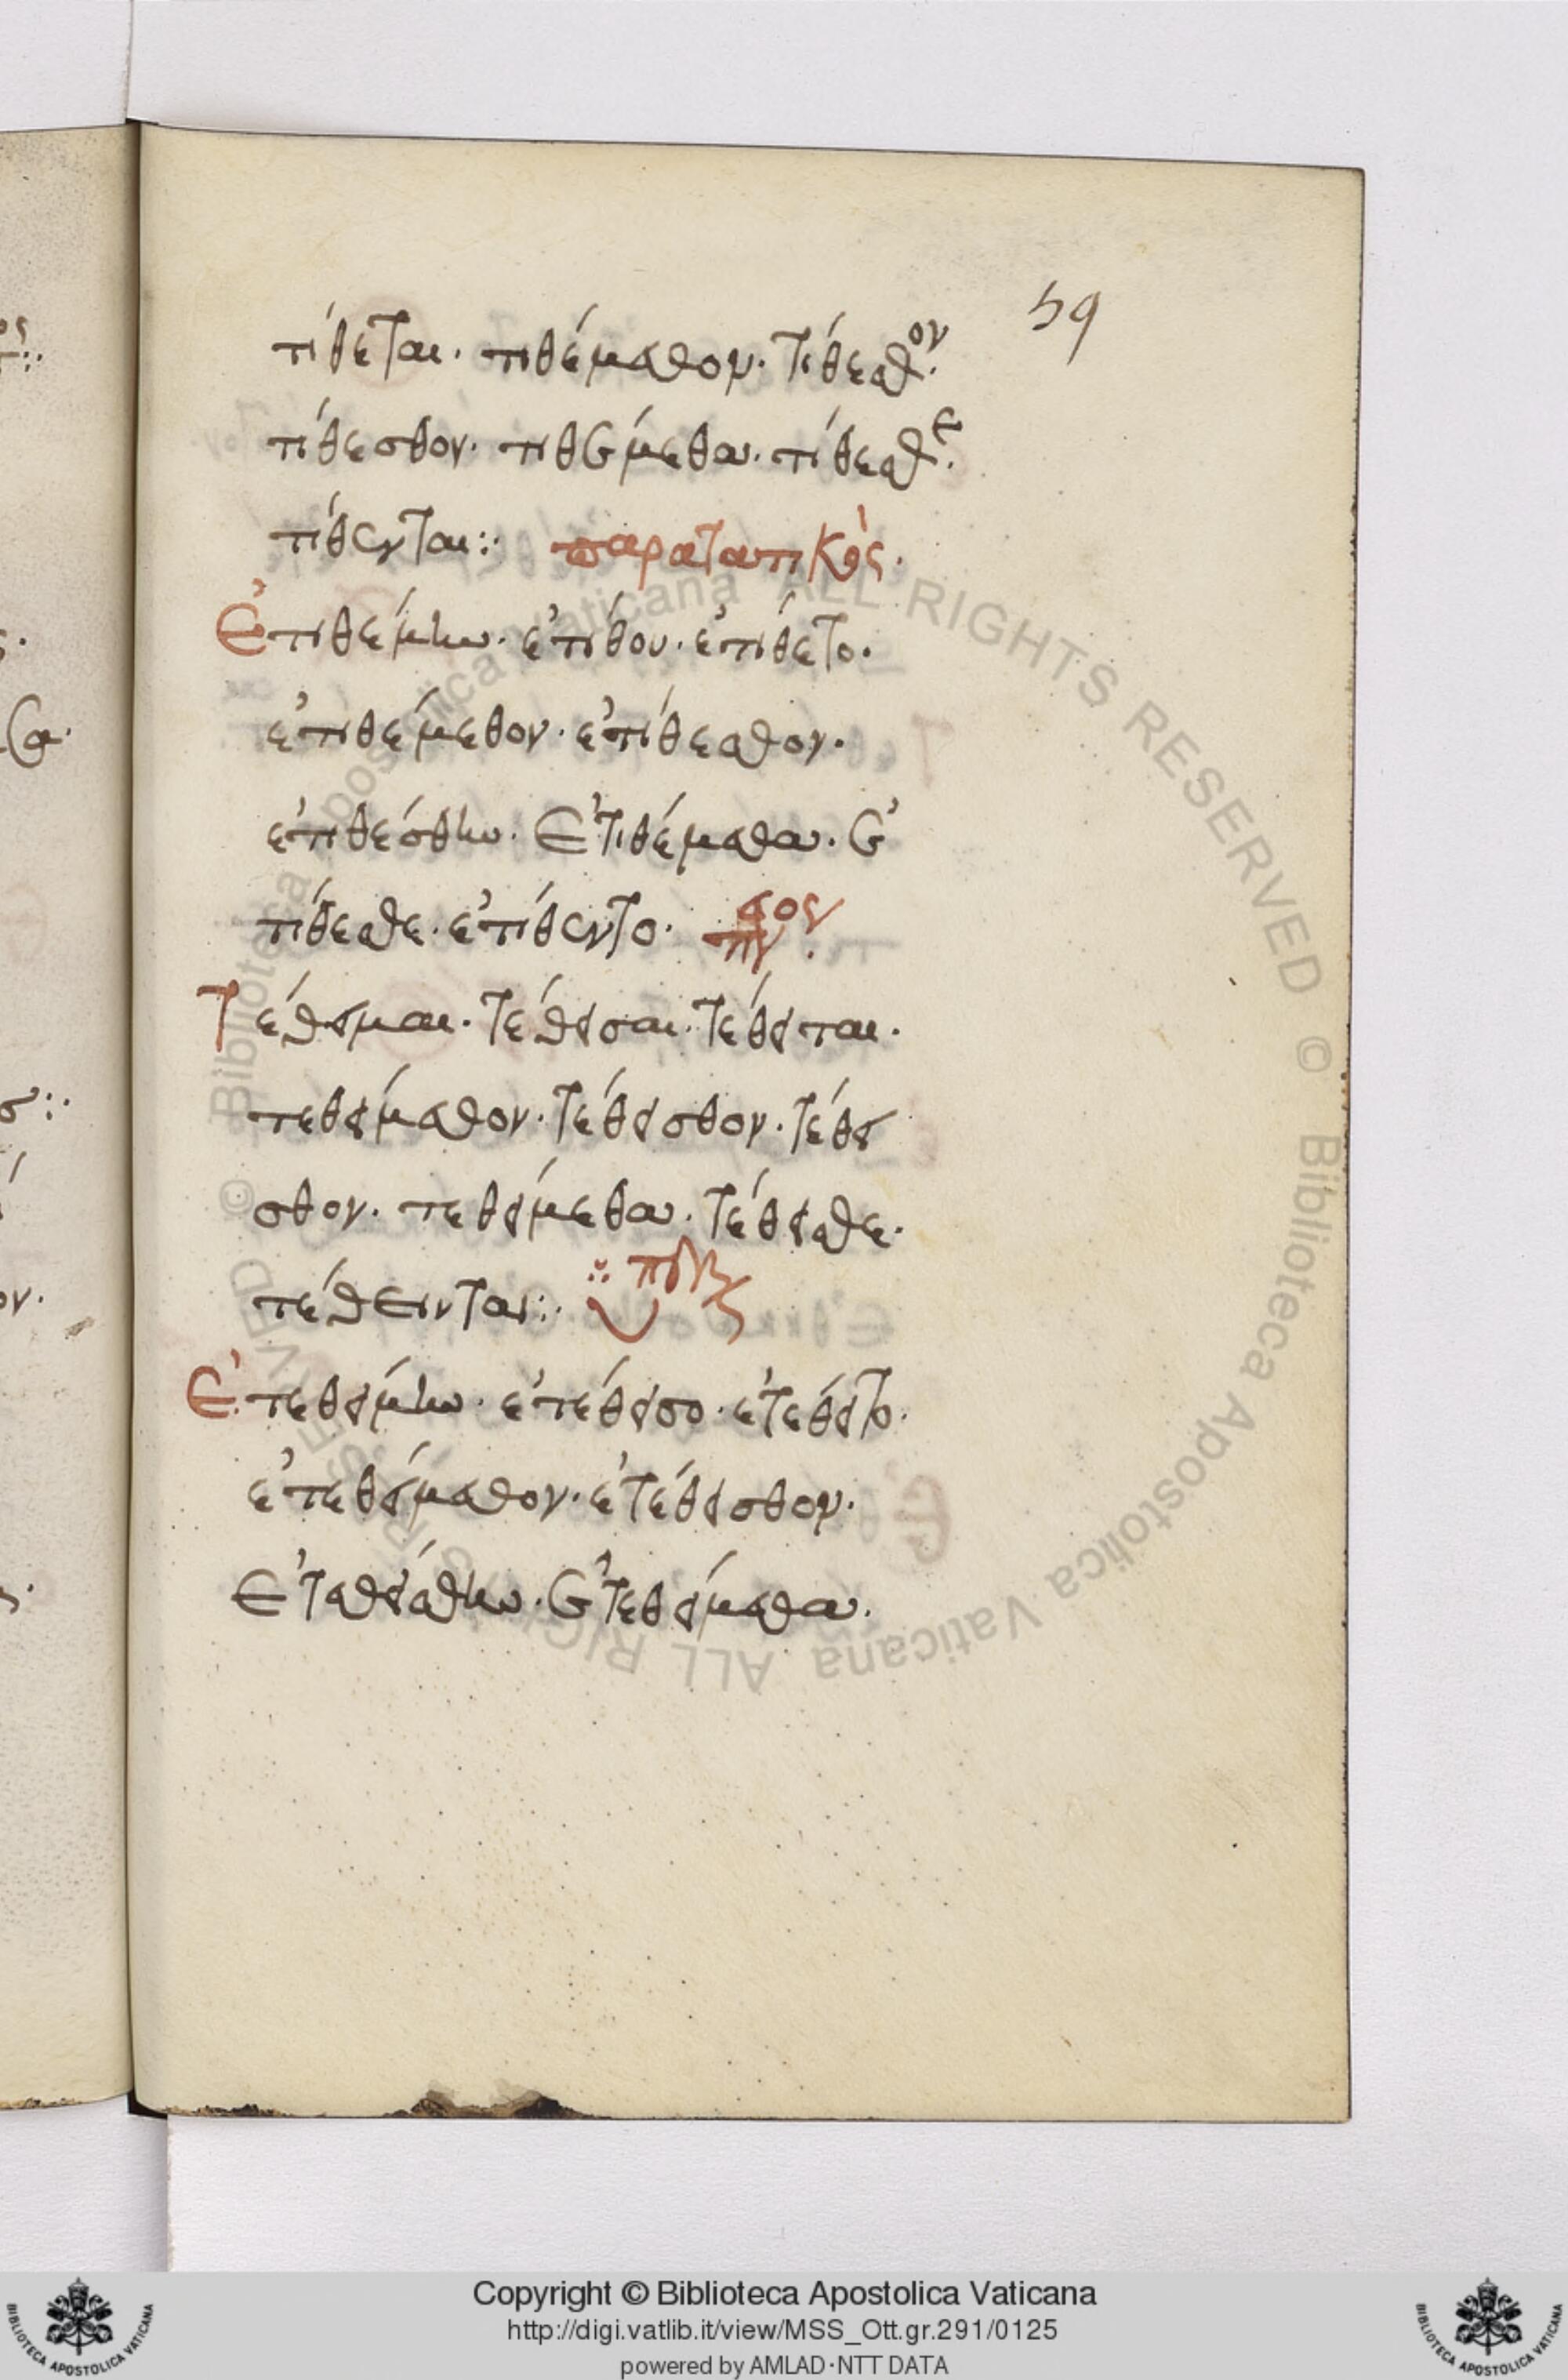 59
τίθεται· τιθέμεθον· τίθεσθον·
τίθεσθον· τιθέμεθα· τίθεσθε·
τίθενται:: παρατατικός·
Ἐτιθέμην· ἐτίθου· ἐτίθετο·
ἐτιθέμεθον· ἐτίθεσθον·
ἐτιθέσθην· ἐτιθέμεθα· ἐ
τίθεσθε· ἐτίθεντο·
Τέθειμαι· τέθεισαι· τέθειται·
τεθείμεθον· τέθεισθον· τέθει
σθον· τεθείμεθα· τέθεισθε·
τέθεινται::
Ἐτεθείμην· ἐτέθεισο· ἐτέθειτο·
ἐτεθείμεθον· ἐτέθεισθον·
ἐτεθείσθην· ἐτεθείμεθα·
Biblioteca Apostolica Vaticana ALL RIGHTS RESERVED ©
Biblioteca Apostolica Vaticana ALL RIGHTS RESERVED ©
Copyright © Biblioteca Apostolica Vaticana
http://digi.vatlib.it/view/MSS_Ott.gr.291/0125
powered by AMLAD·NTT DATA
BIBLIOTECA APOSTOLICA VATICANA
BIBLIOTECA APOSTOLICA VATICANA